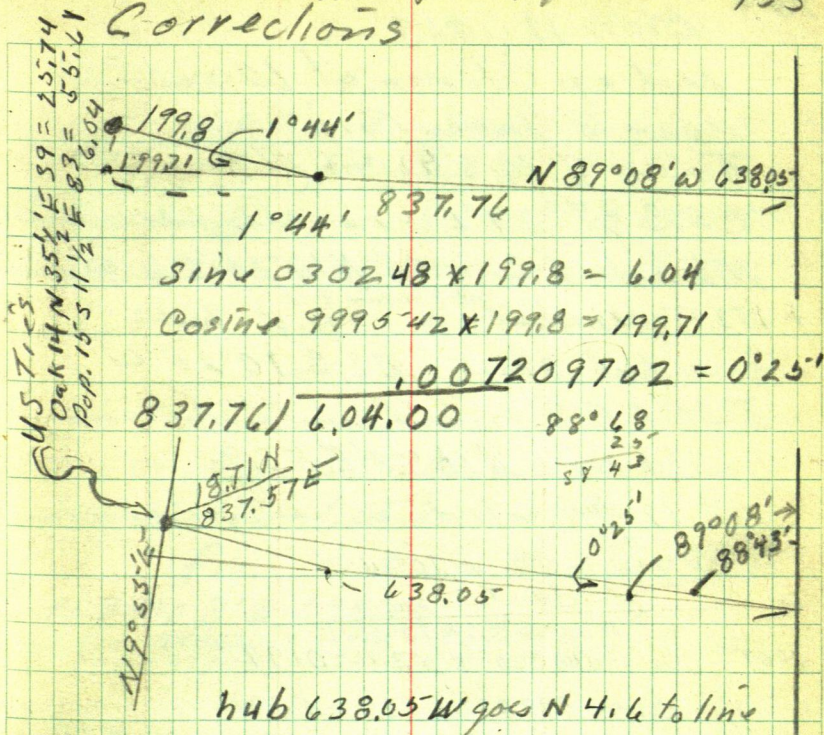 Corrections
US Ties
Oak 14 N 35½ E 39 = 25.74
Pop. 15 S 11½ E 83 = 55.61
6.04
199.8
1°44'
199.71
N 89°08' W 638.05
1°44'
837.76
Sine 030248 x 199.8 = 6.04
Cosine 999542 x 199.8 = 199.71
.007209702 = 0°25'
837.76) 6.04.00
88° 68
25
43
18.71 N
837.57 E
0°25'
89°08'
88°43'
638.05
N 9°55' E
hub 638.05 W goes N 4.6 to line